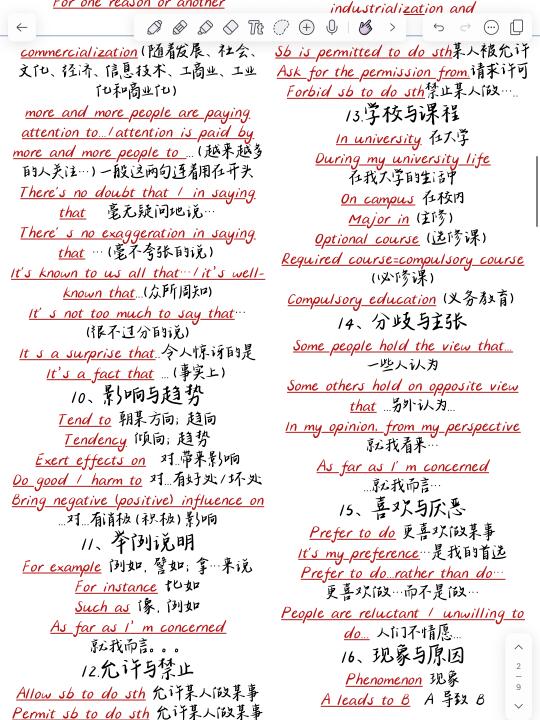 For one reason or another
commercialization(随着发展、社会、
文化、经济、信息技术、工商业、工业
化和商业化)
more and more people are paying
attention to.../attention is paid by
more and more people to ...(越来越多
的人关注…)一般这两句连着用在开头
There's no doubt that / in saying
that 毫无疑问地说…
There's no exaggeration in saying
that …(毫不夸张的说)
It's known to us all that…/it's well-
known that...(众所周知)
It's not too much to say that…
(很不过分的说)
It s a surprise that..令人惊讶的是
It's a fact that ...(事实上)
10、影响与趋势
Tend to 朝某方向; 趋向
Tendency 倾向; 趋势
Exert effects on 对..带来影响
Do good / harm to 对..有好处/坏处
Bring negative (positive) influence on
...对..有消极(积极)影响
11、举例说明
For example 例如, 譬如; 拿…来说
For instance 比如
Such as 像, 例如
As far as I'm concerned
就我而言。。。
12.允许与禁止
Allow sb to do sth 允许某人做某事
Permit sb to do sth 允许某人做某事
industrialization and
Sb is permitted to do sth某人被允许
Ask for the permission from请求许可
Forbid sb to do sth禁止某人做…
13.学校与课程
In university 在大学
During my university life
在我大学的生活中
On campus 在校内
Major in (主修)
Optional course (选修课)
Required course=compulsory course
(必修课)
Compulsory education (义务教育)
14、分歧与主张
Some people hold the view that...
一些人认为
Some others hold on opposite view
that ...另外认为...
In my opinion, from my perspective
就我看来…
As far as I'm concerned
...就我而言…
15、喜欢与厌恶
Prefer to do 更喜欢做某事
It's my preference…是我的首选
Prefer to do...rather than do…
更喜欢做…而不是做…
People are reluctant / unwilling to
do... 人们不情愿...
16、现象与原因
Phenomenon 现象
A leads to B A 导致 B
2
9